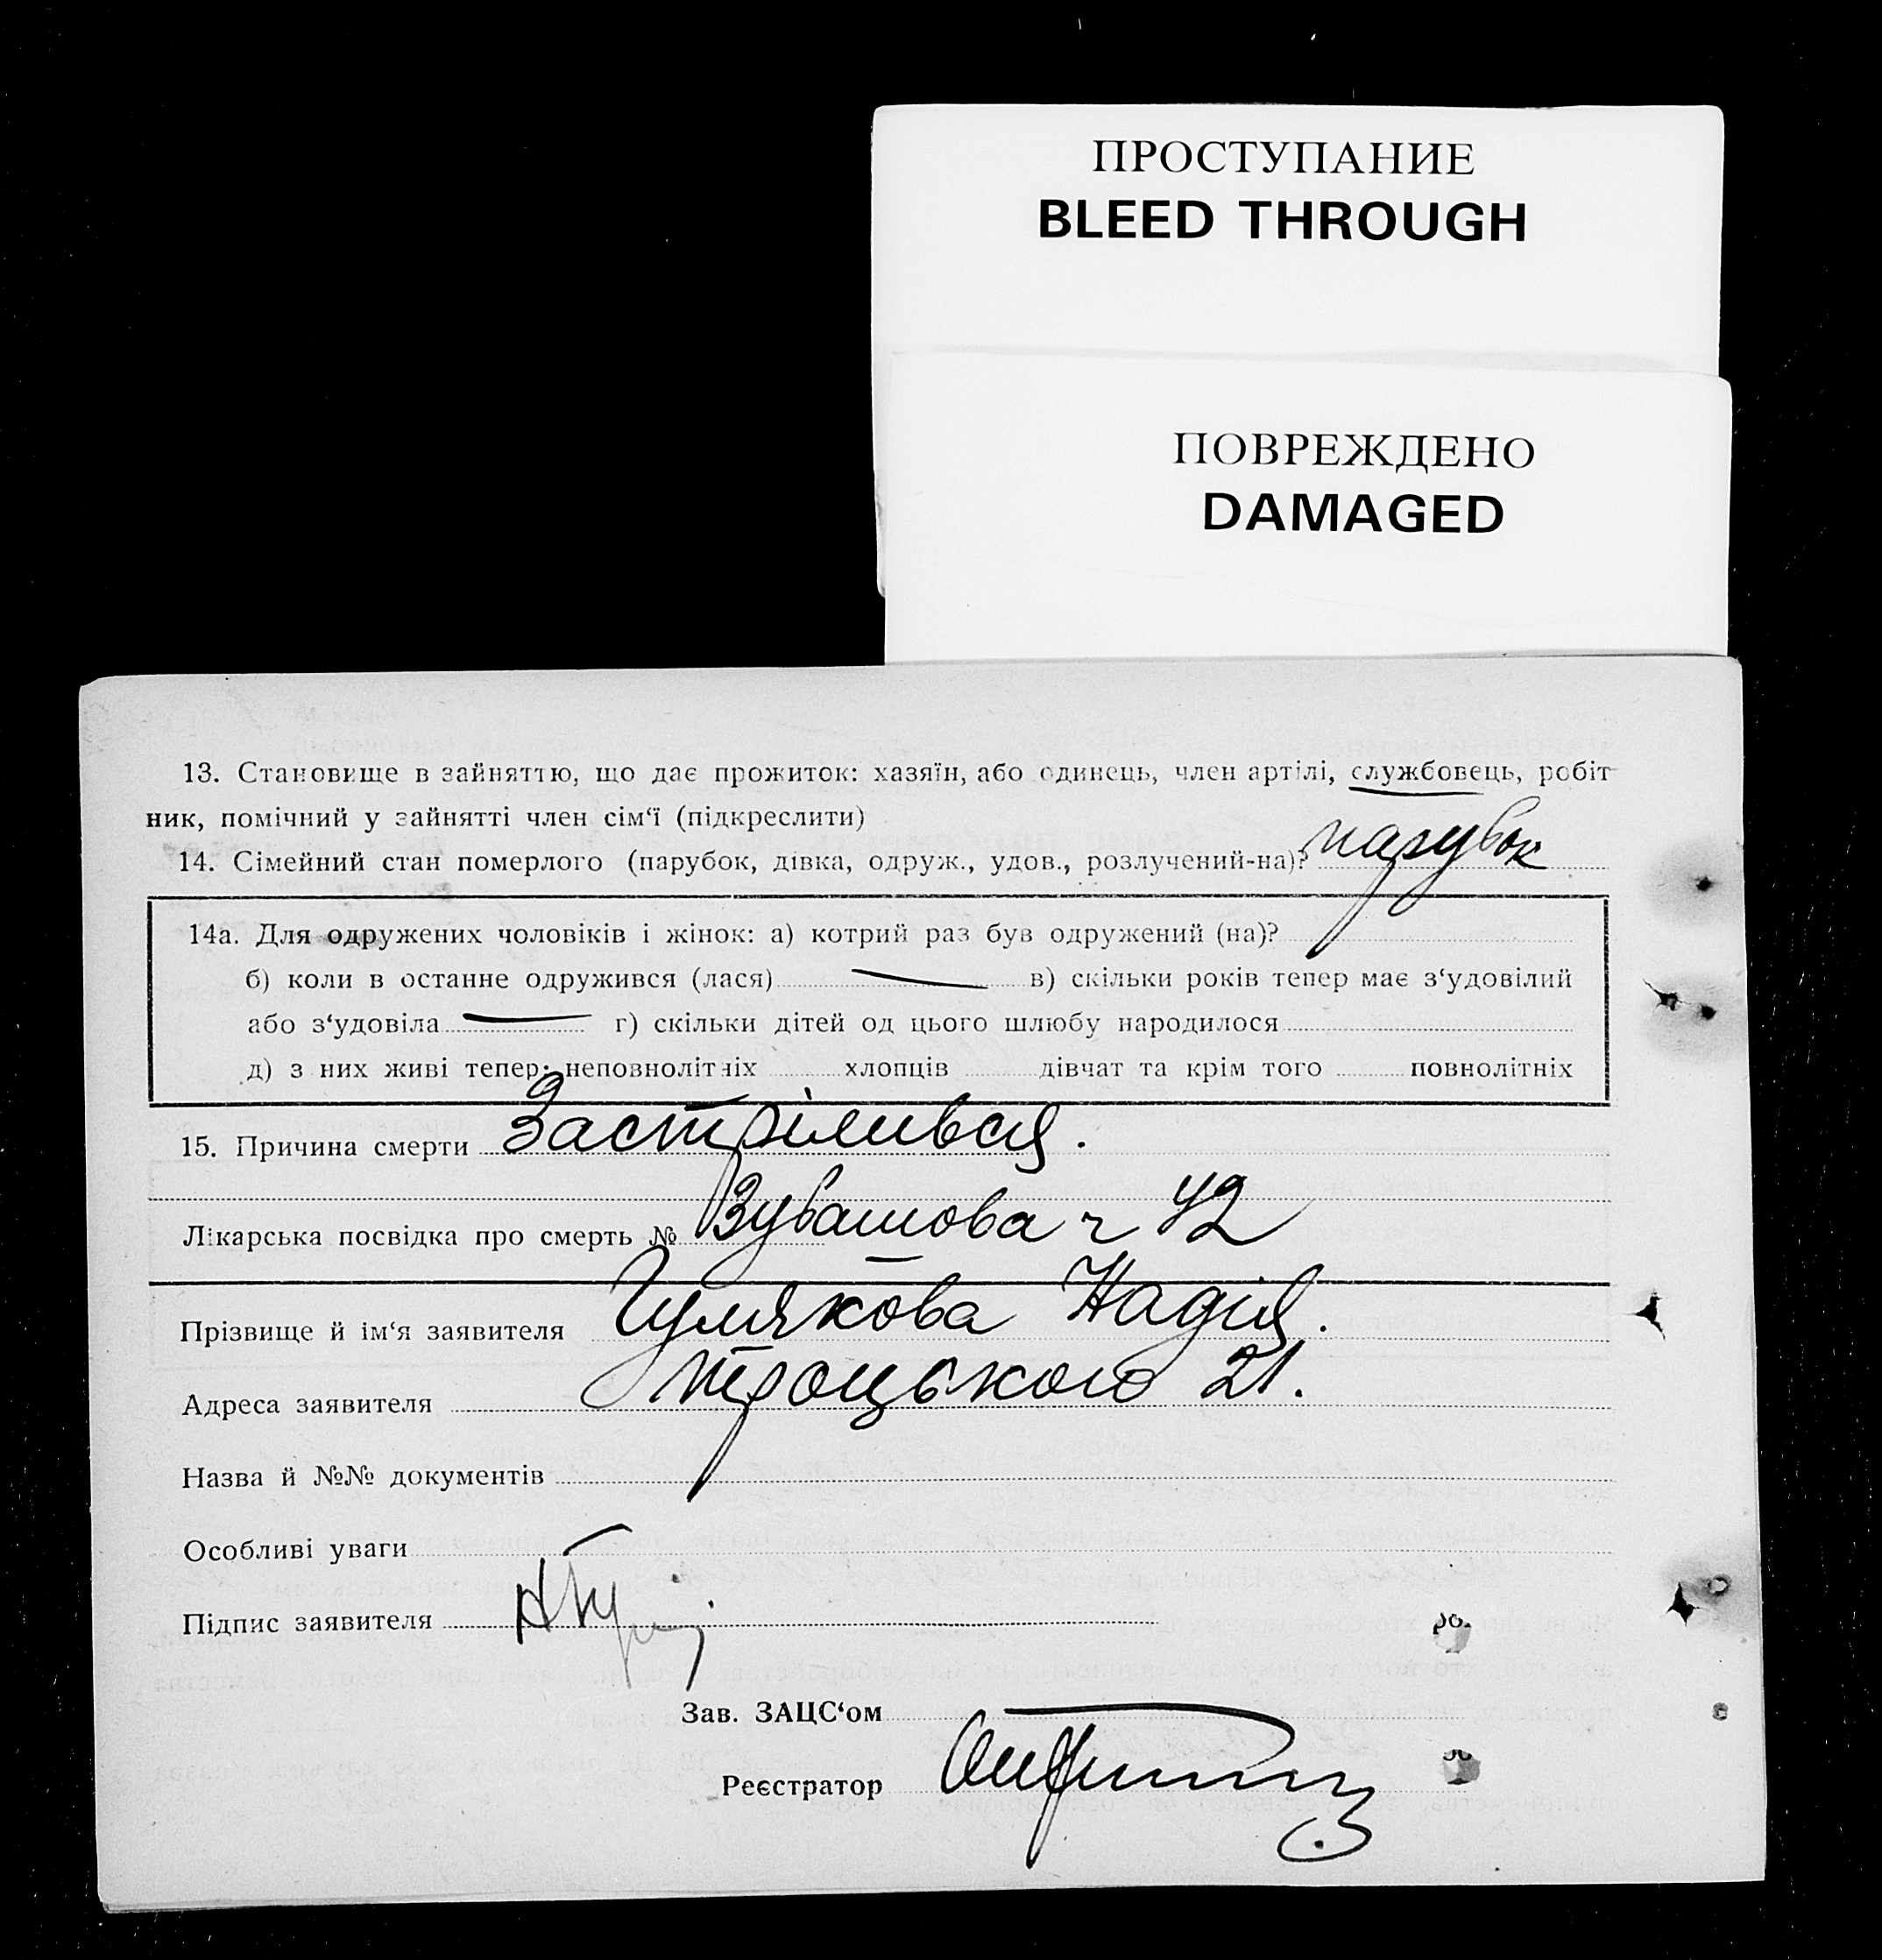 ПРОСТУПАНИЕ
BLEED THROUGH
ПОВРЕЖДЕНО
DAMAGED
13. Становище в зайняттю, що дає прожиток: хазяїн, або одинець, член артілі, службовець, робіт-
ник, помічний у зайнятті член сім‘ї (підкреслити)
14. Сімейний стан померлого (парубок, дівка, одруж., удов., розлучений-на)? парубок
14а. Для одружених чоловіків і жінок: а) котрий раз був одружений (на)?
б) коли в останне одружився (лася) — в) скільки років тепер має з‘удовілий
або з‘удовіла — г) скільки дітей од цього шлюбу народилося
д) з них живі тепер: неповнолітніх хлопців дівчат та крім того повнолітніх
15. Причина смерти Застрілився.
Лікарська посвідка про смерть № ч 42
Прізвище й ім‘я заявителя Гулякова Надія.
Адреса заявителя Троцького 21.
Назва й №№ документів
Особливі уваги
Підпис заявителя
Зав. ЗАЦС‘ом
Реєстратор